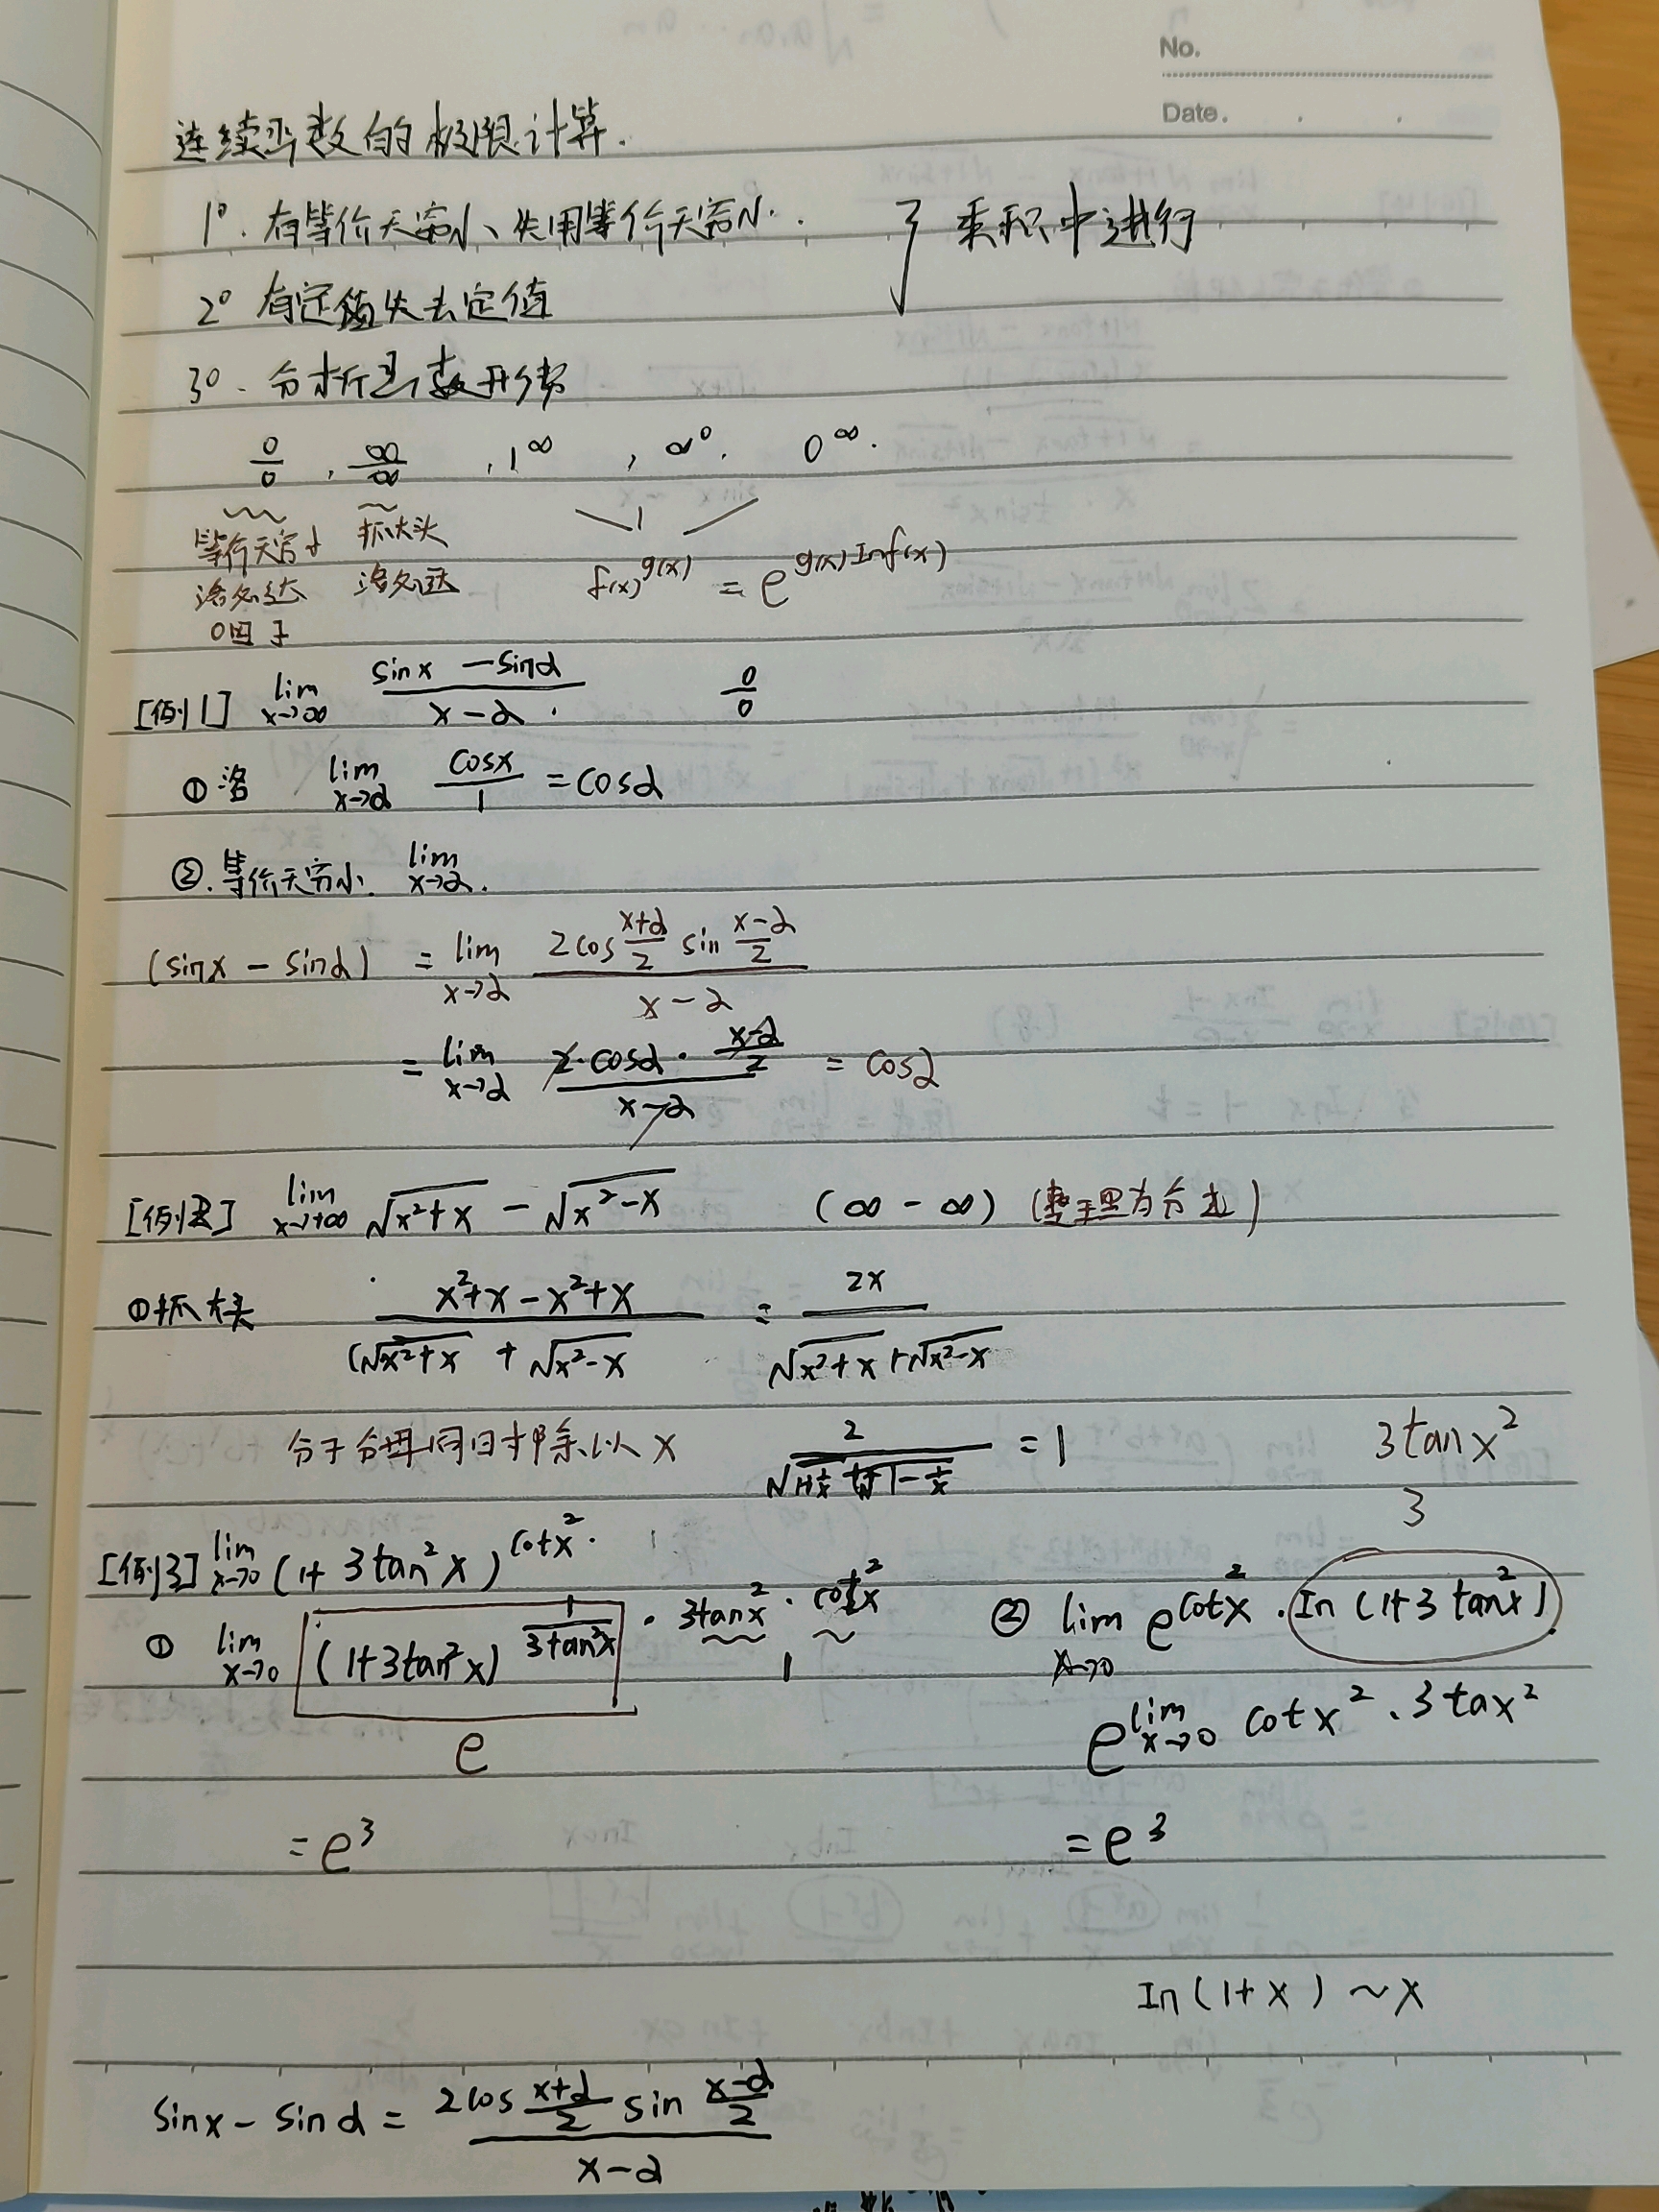 No.
Date.
连续函数的极限计算.
1° . 有等价无穷小、先用等价无穷小. } 乘积中进行
2° 有定值先去定值
3° . 分析函数形势
0/0 , ∞/∞ , 1^∞ , ∞^0 . 0^∞ .
等价无穷小 抓大头
洛必达 洛必达 f(x)^g(x) = e^(g(x) In f(x))
0因子
[例1] lim x→∞ (sinx - sinα)/(x-α) . 0/0
① 洛 lim x→α cosx/1 = cosα
②. 等价无穷小. lim x→α.
(sinx - sinα) = lim x→α (2cos (x+α)/2 sin (x-α)/2)/(x-α)
= lim x→α (2·cosα · (x-α)/2)/(x-α) = cosα
[例2] lim x→+∞ √(x²+x) - √(x²-x) (∞ - ∞) (整理为分式)
①抓大头 (x²+x-x²+x)/(√(x²+x) + √(x²-x)) = 2x/(√(x²+x) + √(x²-x))
分子分母同时除以x 2/(√(1+1/x) + √(1-1/x)) = 1 3tanx²
3
[例3] lim x→0 (1+3tan²x)^cotx² .
① lim x→0 (1+3tan²x)^(1/(3tan²x)) · 3tanx² · cotx² ② lim x→0 e^cotx² · In(1+3tan²x)
1
e e^lim x→0 cotx² · 3tax²
= e³ = e³
In(1+x) ~ x
sinx - sinα = (2cos (x+α)/2 sin (x-α)/2)/(x-α)